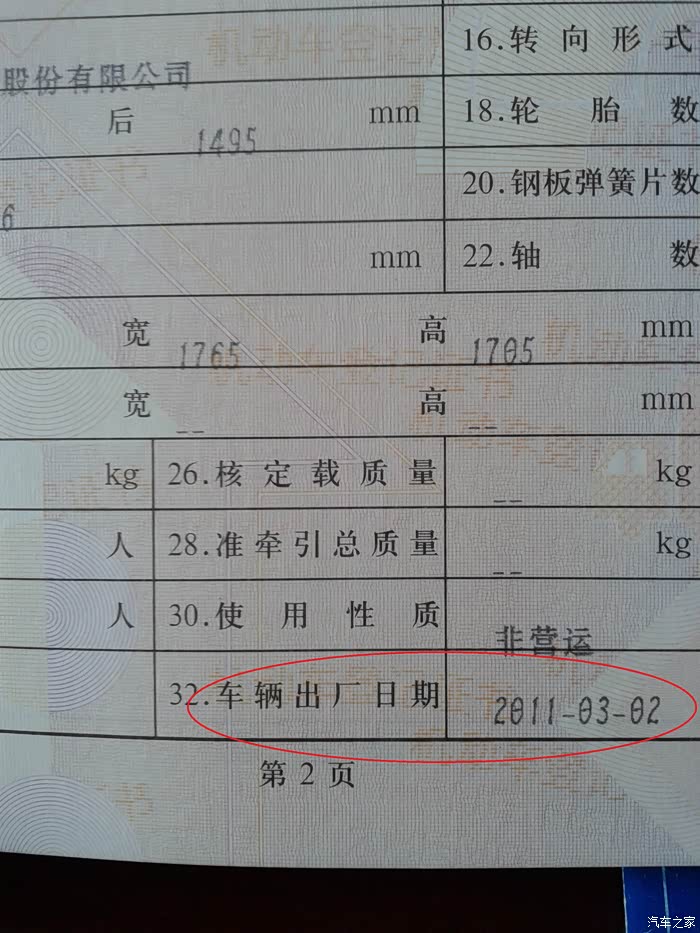 16.转向形式
股份有限公司
后 1495 mm
18.轮胎数
20.钢板弹簧片数
6
mm
22.轴数
宽 1765 高 1705 mm
宽 -- 高 -- mm
kg 26.核定载质量 -- kg
人 28.准牵引总质量 -- kg
人 30.使用性质 非营运
32.车辆出厂日期 2011-03-02
第 2 页
汽车之家